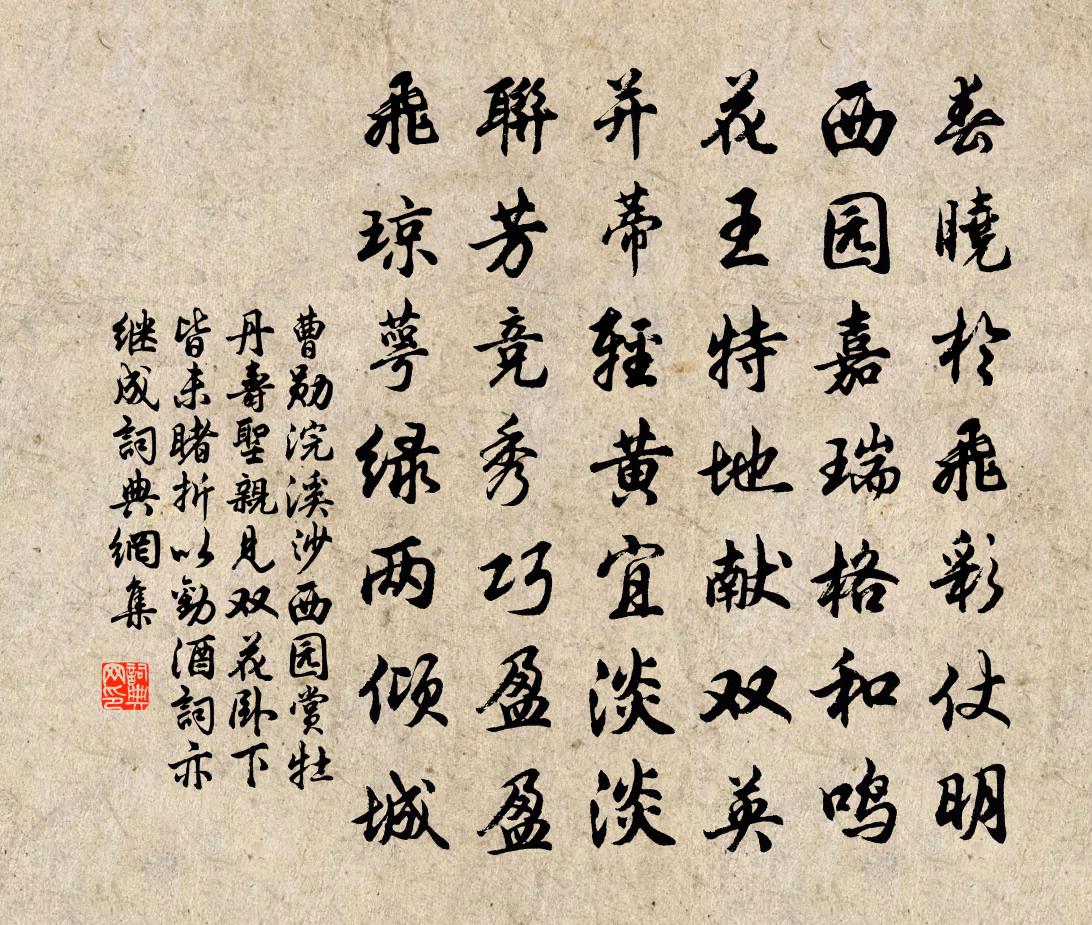 春曉於飛彩仗明
西园嘉瑞格和鸣
花王特地献双英
并蒂輕黄宜淡淡
聯芳竞秀巧盈盈
飛琼萼绿两倾城
曹勋浣溪沙西园赏牡
丹壽聖親見双花臥下
皆未睹折以勸酒詞亦
继成詞典網集
詞典
网印